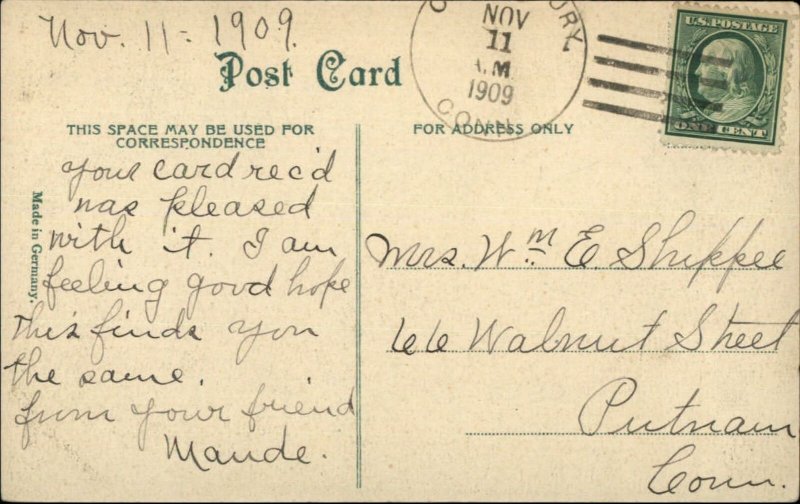 Nov. 11 - 1909.
Post Card
NOV
11
A.M
1909
CONN.
U.S. POSTAGE
ONE CENT
THIS SPACE MAY BE USED FOR
CORRESPONDENCE
FOR ADDRESS ONLY
Made in Germany.
your card rec'd
was pleased
with it. I am
feeling good hope
this finds you
the same.
from your friend
Maude.
Mrs. Wm E. Shippee
66 Walnut Street
Putnam
Conn.